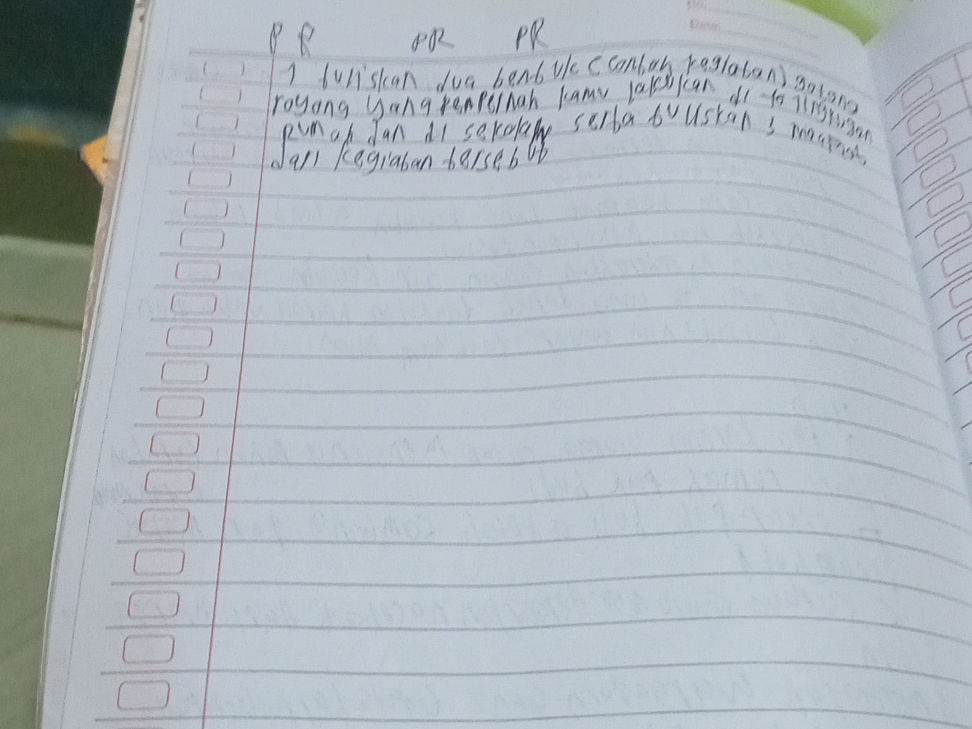 PR PR PR
1 tuliskan dua bentuk (contoh kegiatan) gotong
royong yang pernah kamu lakukan di lingkugan
rumah dan di sekolah serta tuliskan 3 manfaat
dari kegiatan tersebut